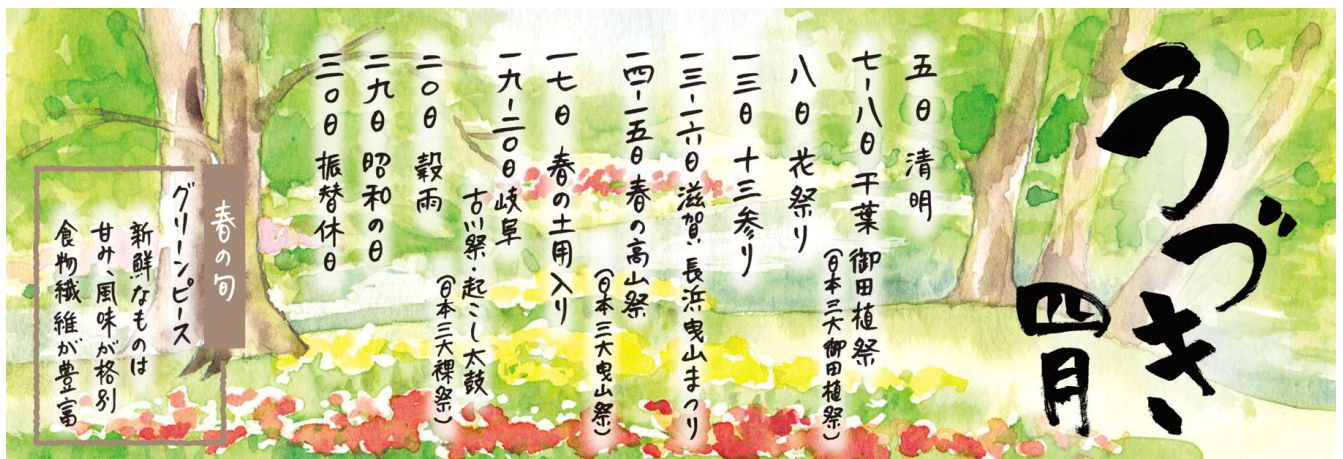 うづき、
四月
五日 清明
七-八日 千葉 御田植祭
(日本三大御田植祭)
八日 花祭り
一三日 十三参り
一三-一六日 滋賀、長浜曳山まつり
一四-一五日 春の高山祭
(日本三大曳山祭)
一七日 春の土用入り
一九-二〇日 岐阜
古川祭・起こし太鼓
(日本三大裸祭)
二〇日 穀雨
二九日 昭和の日
三〇日 振替休日
春の旬
グリーンピース
新鮮なものは
甘み、風味が格別
食物繊維が豊富